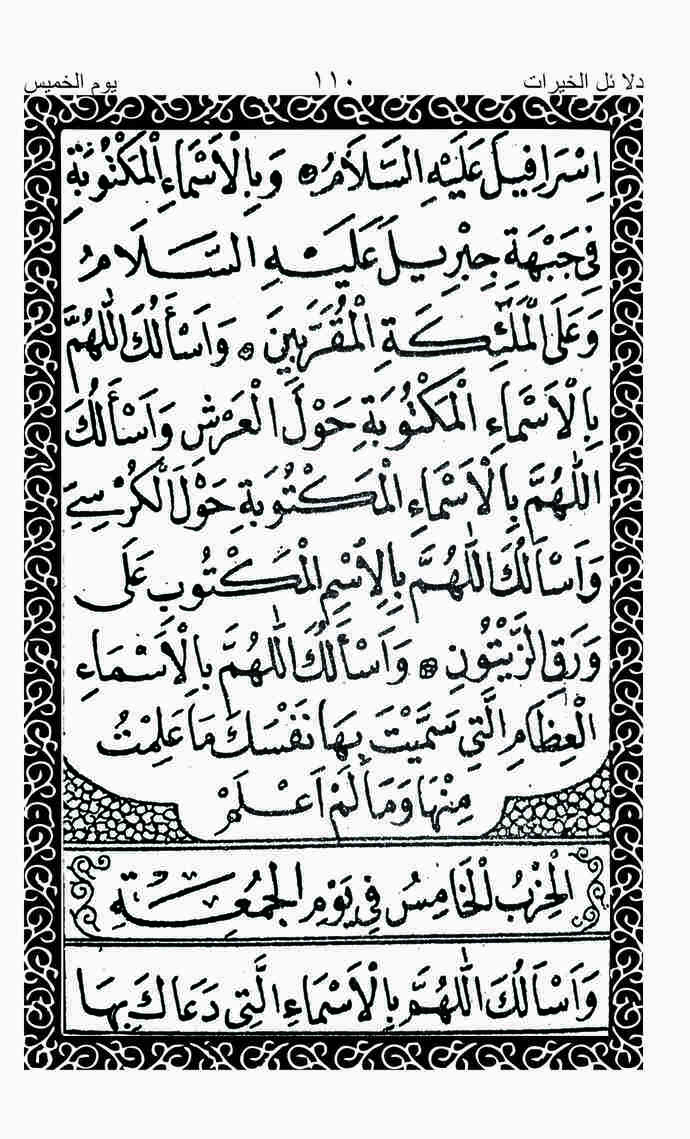 دلا ئل الخيرات ١١٠ يوم الخميس
اِسْرَافِيلَ عَلَيْهِ السَّلَامُ ۞ وَبِالْاَسْمَاءِ الْمَكْتُوبَةِ
فِي جَبْهَةِ جِبْرِيلَ عَلَيْهِ السَّلَامُ
وَعَلَى الْمَلٰٓئِكَةِ الْمُقَرَّبِينَ ۞ وَاَسْأَلُكَ اللّٰهُمَّ
بِالْاَسْمَاءِ الْمَكْتُوبَةِ حَوْلَ الْعَرْشِ وَاَسْأَلُكَ
اللّٰهُمَّ بِالْاَسْمَاءِ الْمَكْتُوبَةِ حَوْلَ الْكُرْسِيِّ
وَاَسْاَلُكَ اللّٰهُمَّ بِالْاِسْمِ الْمَكْتُوبِ عَلَى
وَرَقِ الزَّيْتُونِ ۞ وَاَسْأَلُكَ اللّٰهُمَّ بِالْاَسْمَاءِ
الْعِظَامِ الَّتِي سَمَّيْتَ بِهَا نَفْسَكَ مَا عَلِمْتُ
مِنْهَا وَمَا لَمْ اَعْلَمْ
الْحِزْبُ الْخَامِسُ فِي يَوْمِ الْجُمُعَةِ
وَاَسْاَلُكَ اللّٰهُمَّ بِالْاَسْمَاءِ الَّتِي دَعَاكَ بِهَا